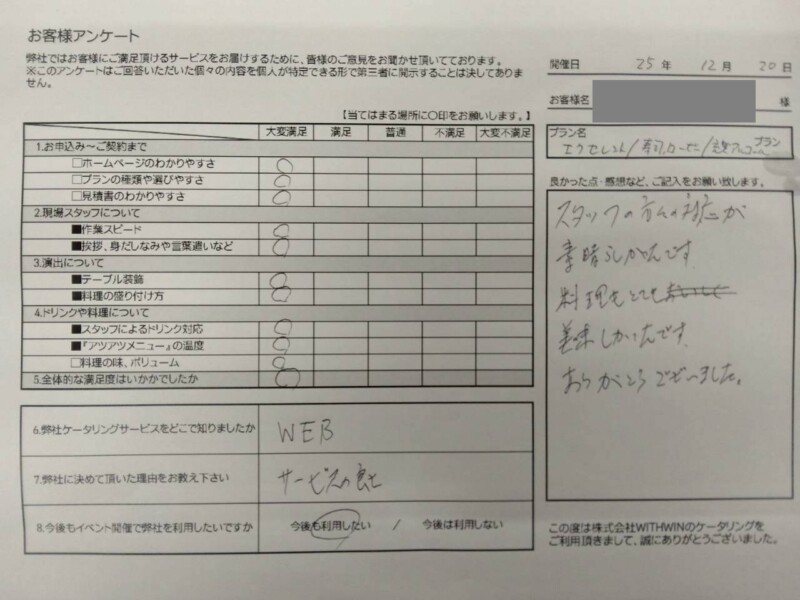 お客様アンケート
弊社ではお客様にご満足頂けるサービスをお届けするために、皆様のご意見をお聞かせ頂いております。
※このアンケートはご回答いただいた個々の内容を個人が特定できる形で第三者に開示することは決してありま
せん。
開催日 25 年 12 月 20 日
お客様名 様
プラン名
エクセレント/寿司 プラン
【当てはまる場所に〇印をお願いします。】
大変満足 満足 普通 不満足 大変不満足
1.お申込み～ご契約まで
□ホームページのわかりやすさ
□プランの種類や選びやすさ
□見積書のわかりやすさ
2.現場スタッフについて
■作業スピード
■挨拶、身だしなみや言葉遣いなど
3.演出について
■テーブル装飾
■料理の盛り付け方
4.ドリンクや料理について
■スタッフによるドリンク対応
■『アツアツメニュー』の温度
□料理の味、ボリューム
5.全体的な満足度はいかがでしたか
6.弊社ケータリングサービスをどこで知りましたか WEB
7.弊社に決めて頂いた理由をお教え下さい サービスの良さ
8.今後もイベント開催で弊社を利用したいですか 今後も利用したい / 今後は利用しない
良かった点・感想など、ご記入をお願い致します。
スタッフの方々の対応が
素晴らしかったです
料理もとても
美味しかったです
ありがとうございました。
この度は株式会社WITHWINのケータリングを
ご利用頂きまして、誠にありがとうございました。